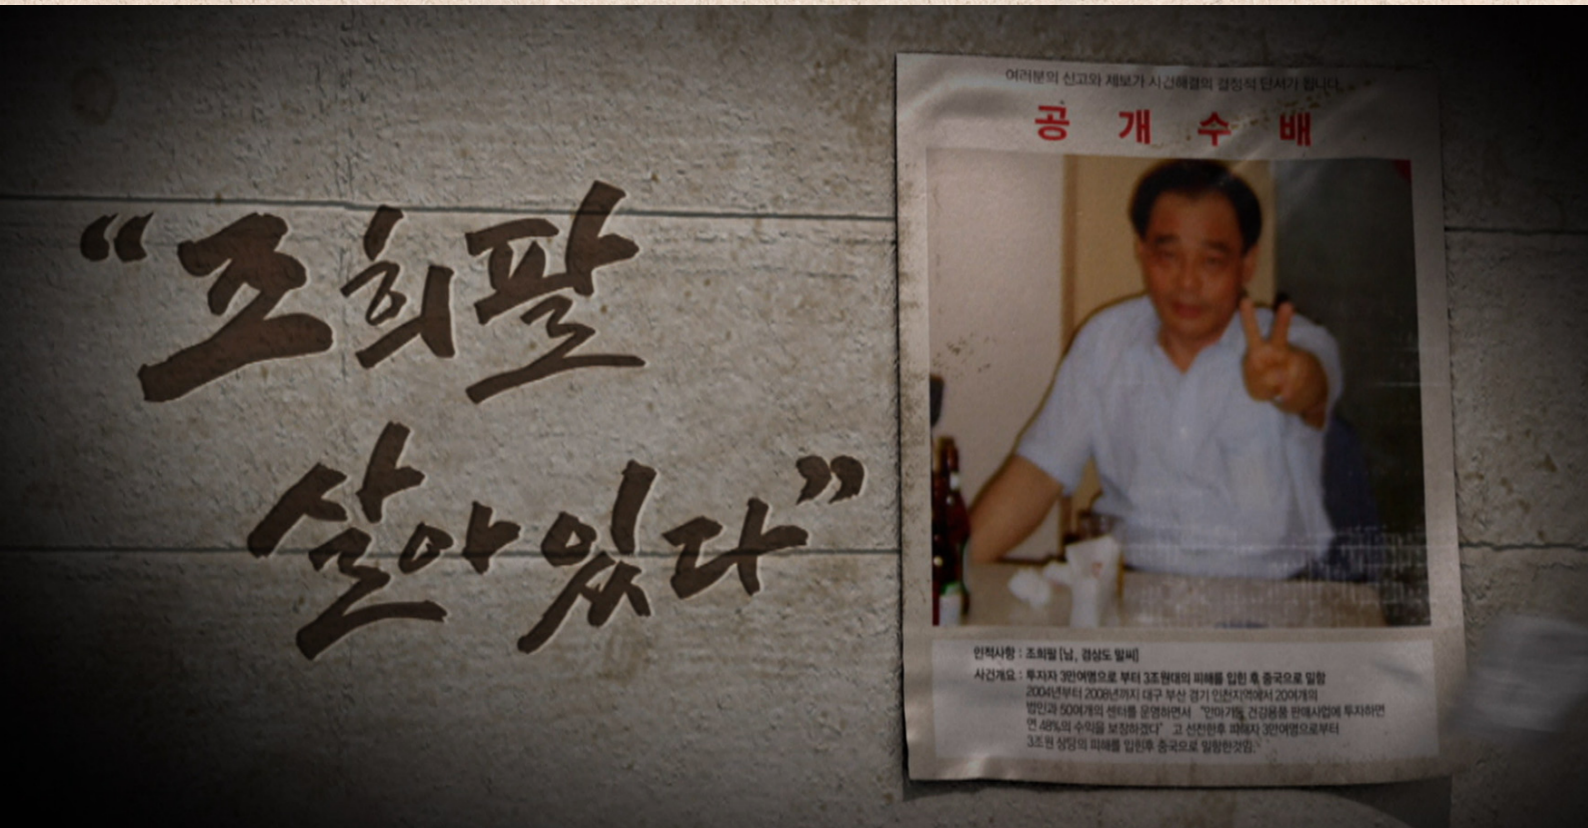 “조희팔
살아있다”
여러분의 신고와 제보가 사건해결의 결정적 단서가 됩니다.
공 개 수 배
인적사항 : 조희팔 [남, 경상도 말씨]
사건개요 : 투자자 3만여명으로 부터 3조원대의 피해를 입힌 후 중국으로 밀항
2004년부터 2008년까지 대구 부산 경기 인천지역에서 20여개의
법인과 50여개의 센터를 운영하면서 "안마기등 건강용품 판매사업에 투자하면
연 48%의 수익을 보장하겠다" 고 선전한후 피해자 3만여명으로부터
3조원 상당의 피해를 입힌후 중국으로 밀항한것임.